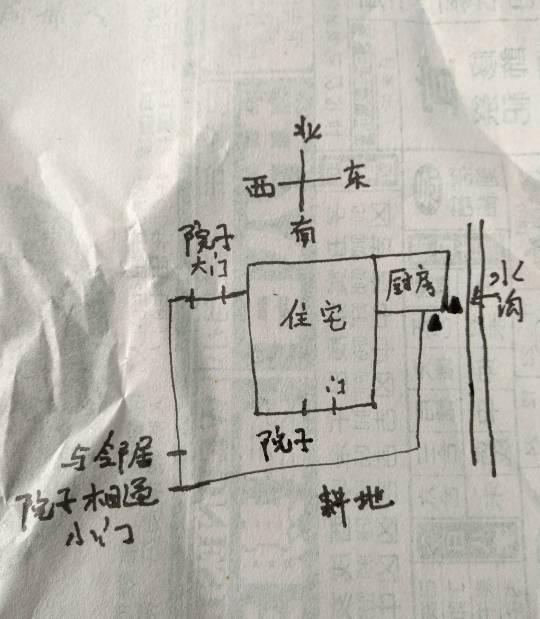 北
西 东
南
院子
大门
厨房
水
沟
住宅
门
院子
与邻居
院子相通
小门
耕地